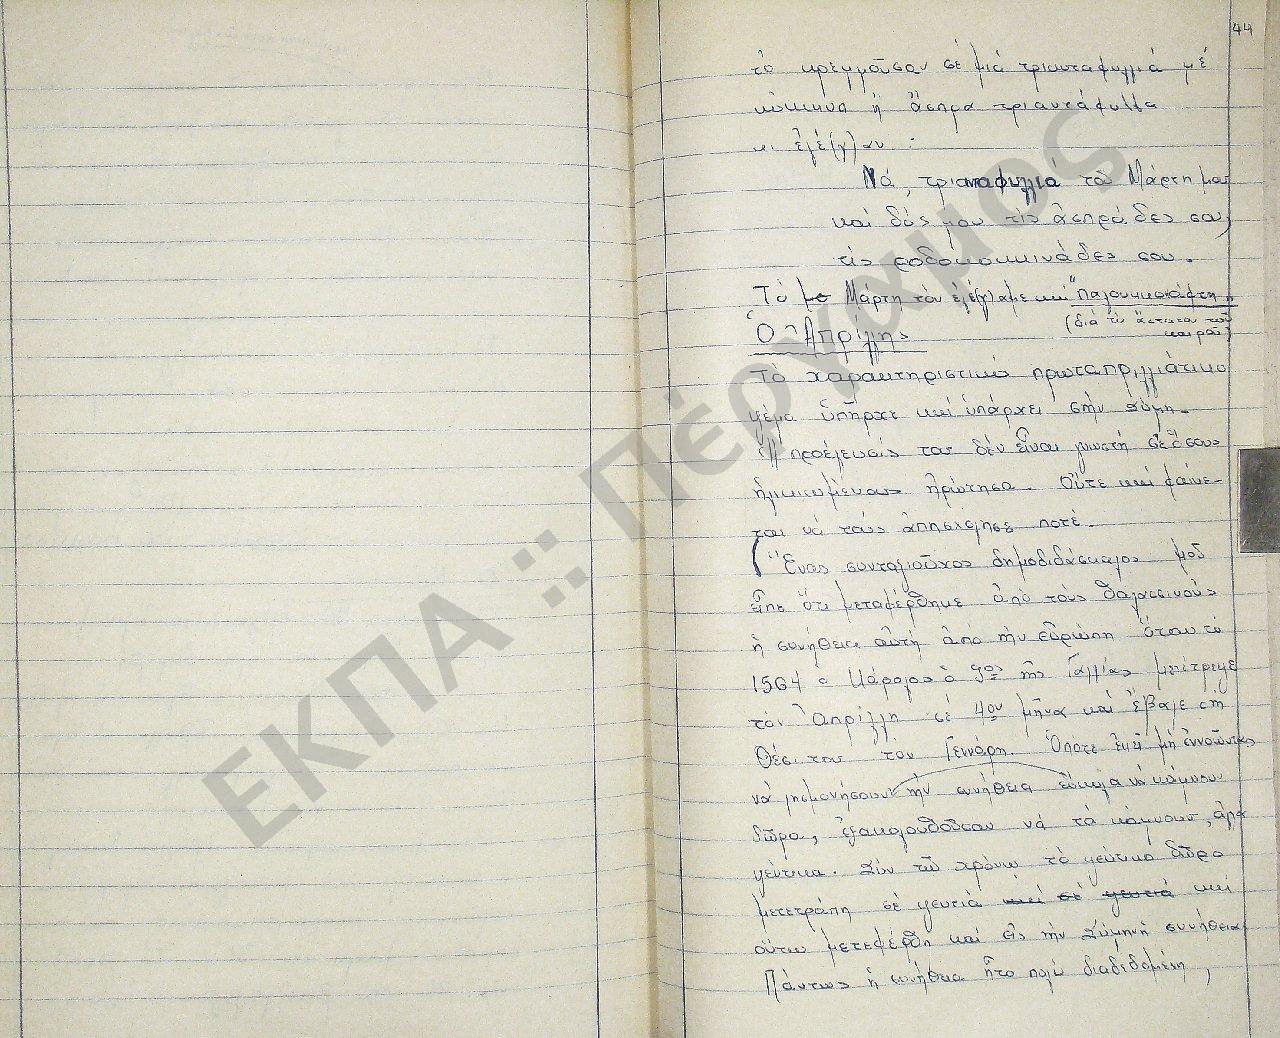 44
τό κρεμμοῦσαν σέ μιά τριανταφυλλιά μέ
κόκκινα ἤ ἄσπρα τριαντάφυλλα
κι ἐλέ(γ)αν :
Νά, τριανταφυλλιά τοῦ Μάρτη μου
καί δός μου τίς ἀσπράδες σου,
τίς ροδοκοκκινάδες σου.
Τό Μάρτη τόν ἐλέ(γ)αμε καί "Παλουκκοκάφτη"
(διά τό ἄστατον τοῦ
καιροῦ)
Ὁ Ἀπρίλης
Τό χαρακτηριστικό πρωταπριλιάτικο
ψέμα ὑπῆρχε καί ὑπάρχει στήν Σύμη.
Ἡ προέλευσίς του δέν εἶναι γνωστή σέ ὅσους
ἡλικιωμένους ἠρώτησα. Οὔτε καί φαίνε-
ται νά τούς ἀπησχόλησε ποτέ.
Ἕνας συνταξιοῦχος δημοδιδάσκαλος μοῦ
εἶπε ὅτι μεταφέρθηκε ἀπό τούς θαλασσινούς
ἡ συνήθεια αὐτή ἀπό τήν Εὐρώπη ὅταν τό
1564 ὁ Κάρολος ὁ 9ος τῆς Γαλλίας μετέτρεψε
τόν Ἀπρίλη σέ 4ον μῆνα καί ἔβαλε στή
θέσι του τόν Γεννάρη. Ὁπότε ἐκεῖ μή ἐννοῶντας
νά λησμονήσουν τήν συνήθεια εὔκολα νά κάμνουν
δῶρα, ἐξακολουθοῦσαν νά τά κάμνουν, ἀλλά
ψεύτικα. Σύν τῷ χρόνῳ τό ψεύτικο δῶρο
μετετράπη σέ ψευτιά καί σέ ψευτιά καί
οὕτω μετεφέρθη καί εἰς τήν Σύμην ἡ συνήθεια.
Πάντως ἡ συνήθεια ἦτο πολύ διαδεδομένη,
ΕΚΠΑ :: Πέργαμος